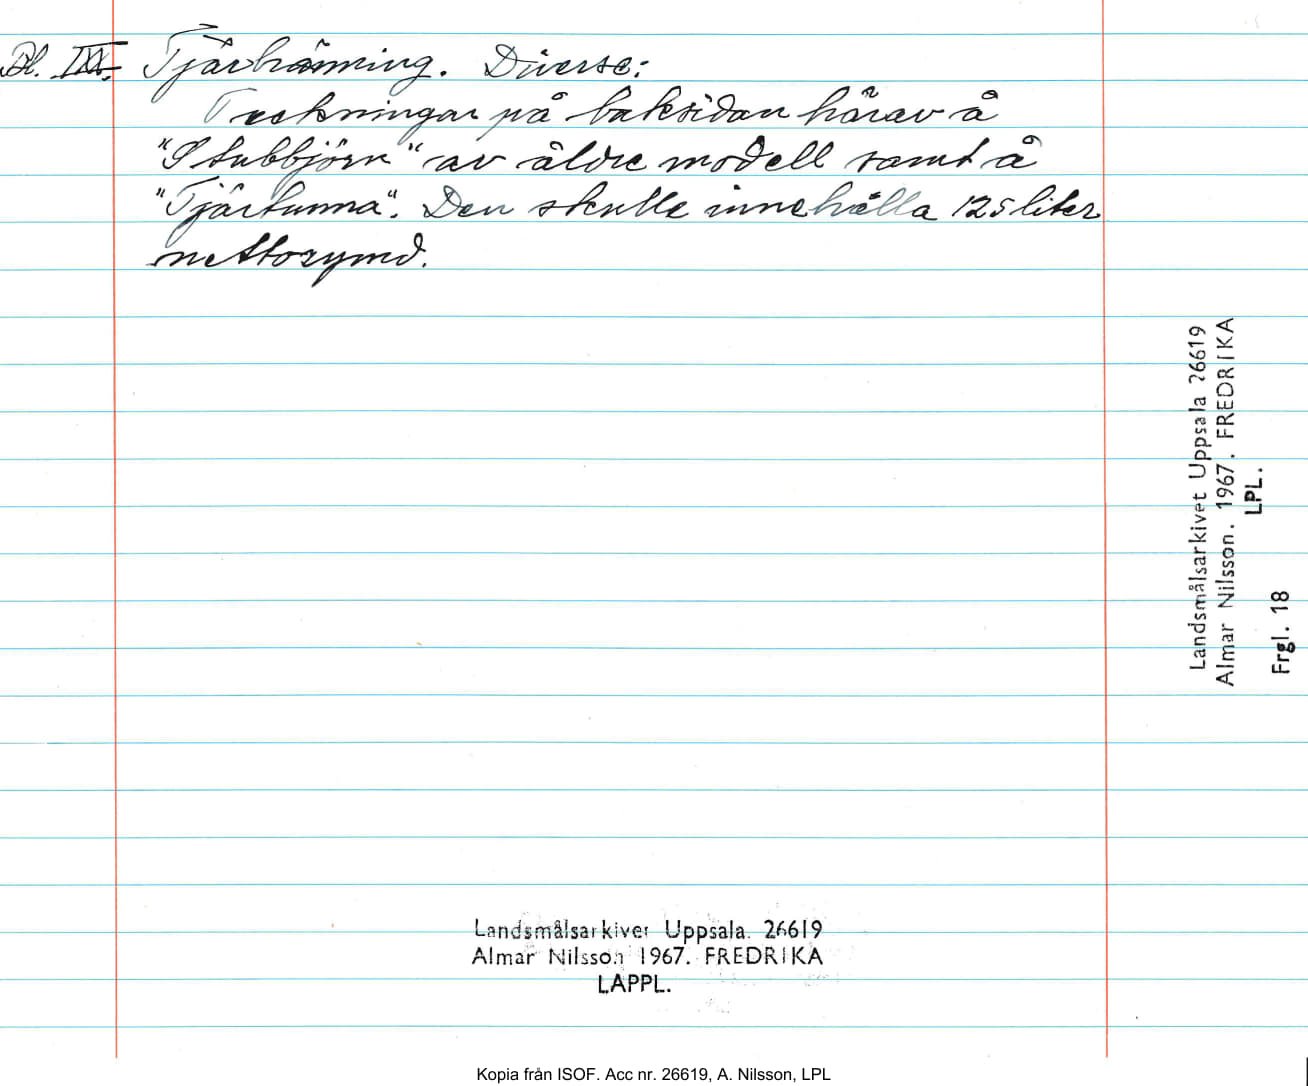 Bl. IXX. Tjärbränning. Diverse:
Teckningar på baksidan härav å
"Stubbjörn" av äldre modell samt å
"Tjärtunna". Den skulle innehålla 125 liter
nettorymd.
Landsmålsarkivet Uppsala 26619
Almar Nilsson. 1967. FREDRIKA
LPL.
Frgl. 18
Landsmålsarkivet Uppsala. 26619
Almar Nilsson 1967. FREDRIKA
LAPPL.
Kopia från ISOF. Acc nr. 26619, A. Nilsson, LPL